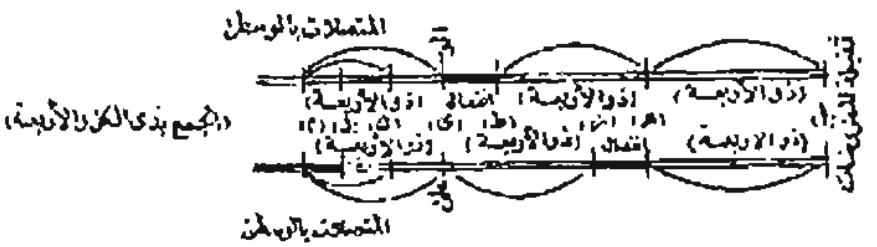 المتصلات بالوسطى
(ذو الأربعة) (ذو الأربعة) انفصال (ذو الأربعة)
(أ) (هـ) (ز) (ط) (ي) (ك) (ل) (م)
(الجمع بذي الكل والأربعة)
(ذو الأربعة) انفصال (ذو الأربعة) (ذو الأربعة)
المتصلات بالوسطى